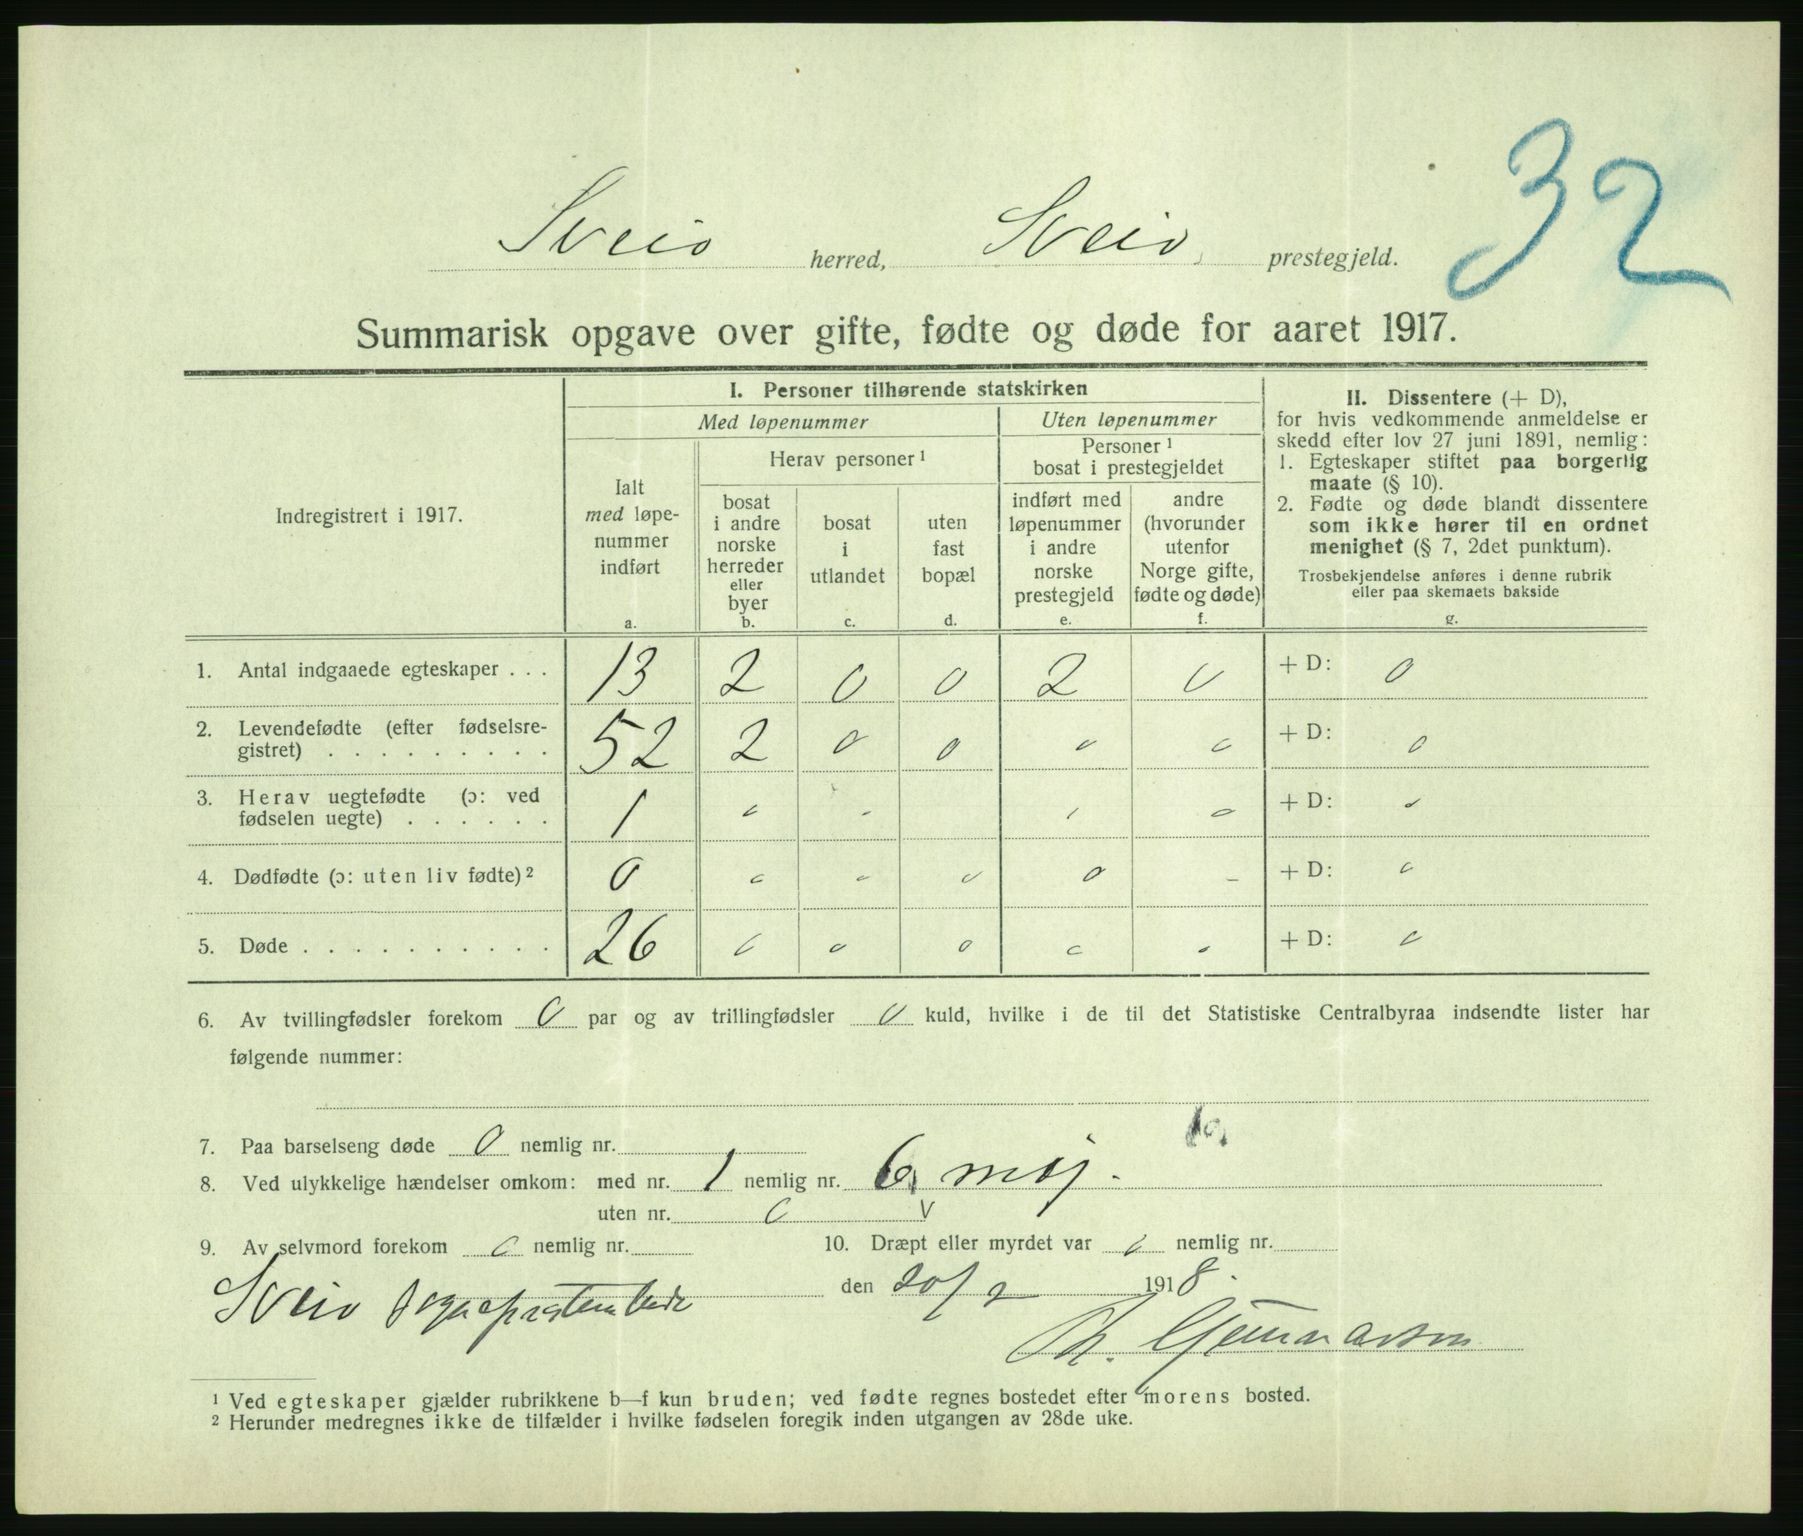 32
Sveio herred, Sveio prestegjeld.
Summarisk opgave over gifte, fødte og døde for aaret 1917.
Indregistrert i 1917.
I. Personer tilhørende statskirken
Med løpenummer
Uten løpenummer
Ialt med løpenummer indført a.
Herav personer¹
bosat i andre norske herreder eller byer b.
bosat i utlandet c.
uten fast bopæl d.
Personer¹ bosat i prestegjeldet
indført med løpenummer i andre norske prestegjeld e.
andre (hvorunder utenfor Norge gifte, fødte og døde) f.
II. Dissentere (+ D),
for hvis vedkommende anmeldelse er
skedd efter lov 27 juni 1891, nemlig:
1. Egteskaper stiftet paa borgerlig
maate (§ 10).
2. Fødte og døde blandt dissentere
som ikke hører til en ordnet
menighet (§ 7, 2det punktum).
Trosbekjendelse anføres i denne rubrik
eller paa skemaets bakside
g.
1. Antal indgaaede egteskaper . . . 13 2 0 0 2 0 + D: 0
2. Levendefødte (efter fødselsre-
gistret) . . . . . . . . . 52 2 0 0 0 0 + D: 0
3. Herav uegtefødte (ɔ: ved
fødselen uegte) . . . . . . 1 0 - , 0 + D: 0
4. Dødfødte (ɔ: uten liv fødte)² 0 0 0 0 0 - + D: 0
5. Døde . . . . . . . . . . 26 0 0 0 0 0 + D: 0
6. Av tvillingfødsler forekom 0 par og av trillingfødsler 0 kuld, hvilke i de til det Statistiske Centralbyraa indsendte lister har
følgende nummer:
7. Paa barselseng døde 0 nemlig nr.
8. Ved ulykkelige hændelser omkom: med nr. 1 nemlig nr. 6, m
uten nr. 0 v
9. Av selvmord forekom 0 nemlig nr. 10. Dræpt eller myrdet var 0 nemlig nr.
Sveio sogneprestembede den 20/2 1918.
Th.
¹ Ved egteskaper gjælder rubrikkene b—f kun bruden; ved fødte regnes bostedet efter morens bosted.
² Herunder medregnes ikke de tilfælder i hvilke fødselen foregik inden utgangen av 28de uke.